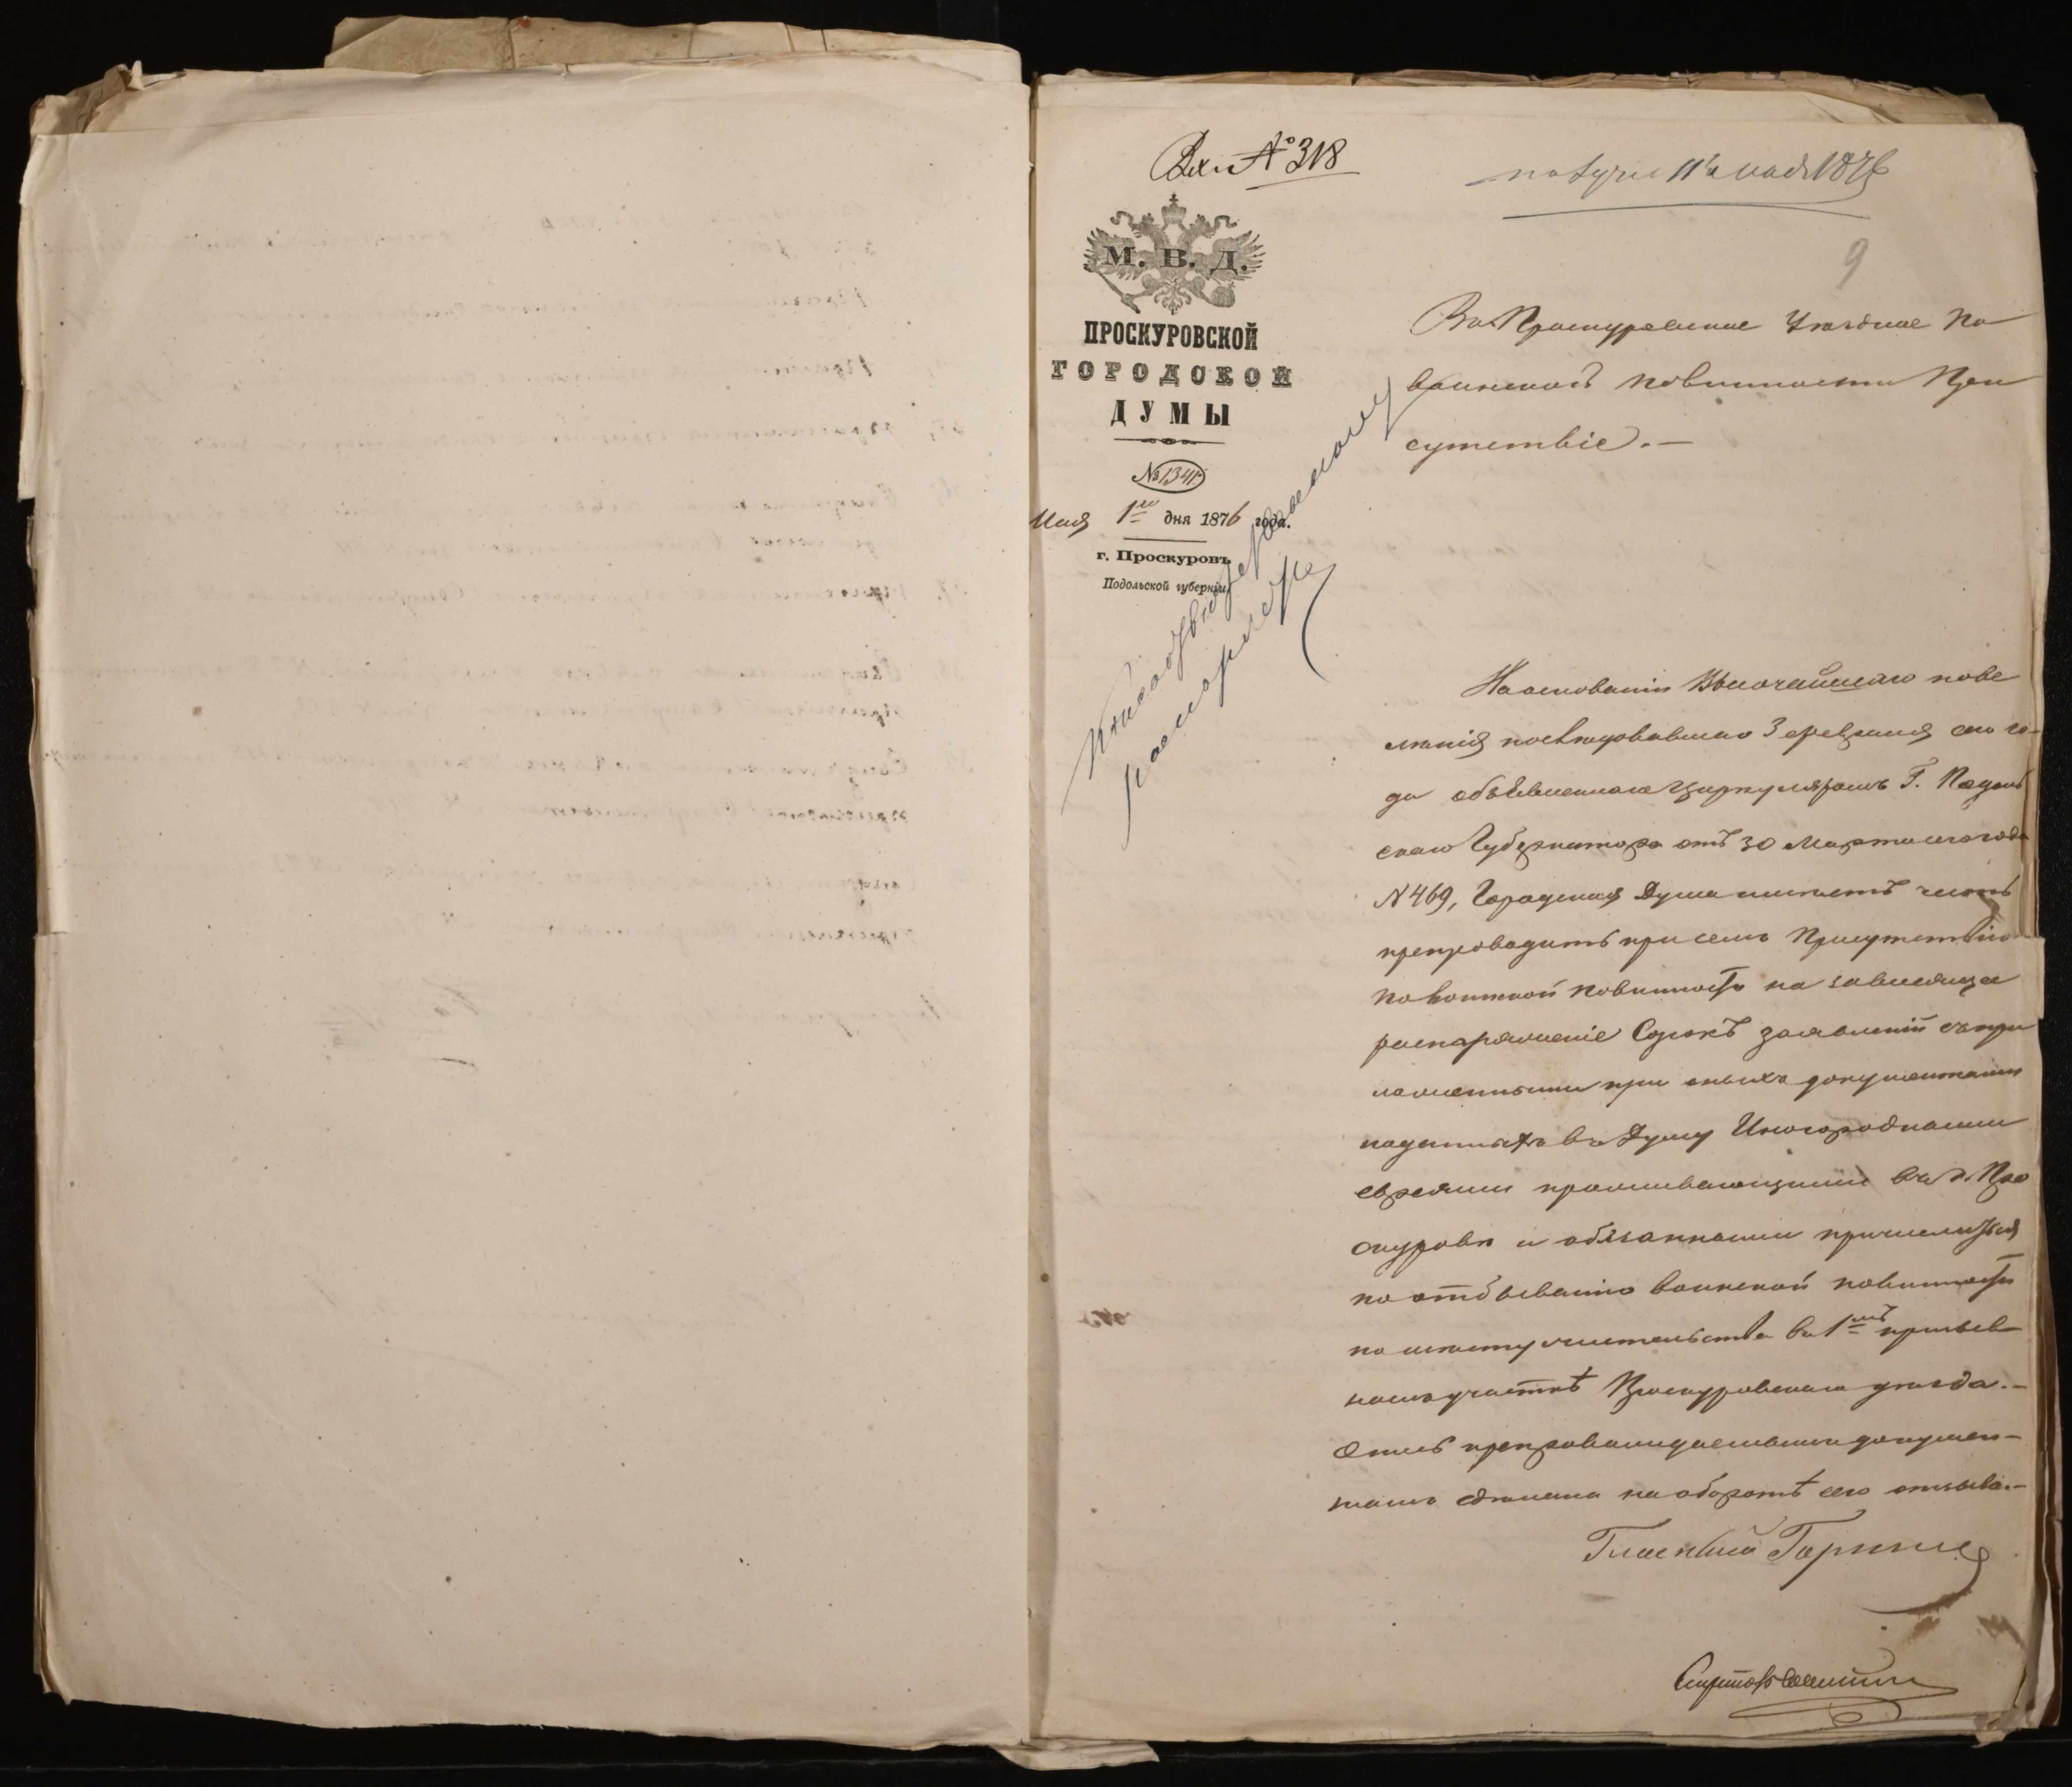 Вх. № 318
получ 11 мая 1876
9
М. В. Д.
ПРОСКУРОВСКОЙ
ГОРОДСКОЙ
ДУМЫ
№ 1341
Мая 1го дня 1876 года.
г. Проскуровъ
Подольской губерніи
Въ Проскуровское Уѣздное по
воинской повинности При
сутствіе.—
На основаніи Высочайшаго пове
лѣнія послѣдовавшаго 3 февраля сего го-
да объявленнаго циркуляромъ Г. Подоль
скаго Губернатора отъ 30 Марта сего года
№ 469, Городская Дума имѣетъ честь
препроводить при семъ Присутствію
по воинской повинности на зависящее
распоряженіе Сорокъ заявленій съ при
ложенными при оныхъ документами
поданныхъ въ Думу Иногородными
евреями проживающими въ г. Про
скуровѣ и обязанными причислиться
по отбыванію воинской повинности
по мѣсту жительства въ 1мъ призыв
номъ участкѣ Проскуровскаго уѣзда.—
Опись препровождаемымъ докумен-
тамъ сдѣлана на оборотѣ сего отзыва.—
Гласный